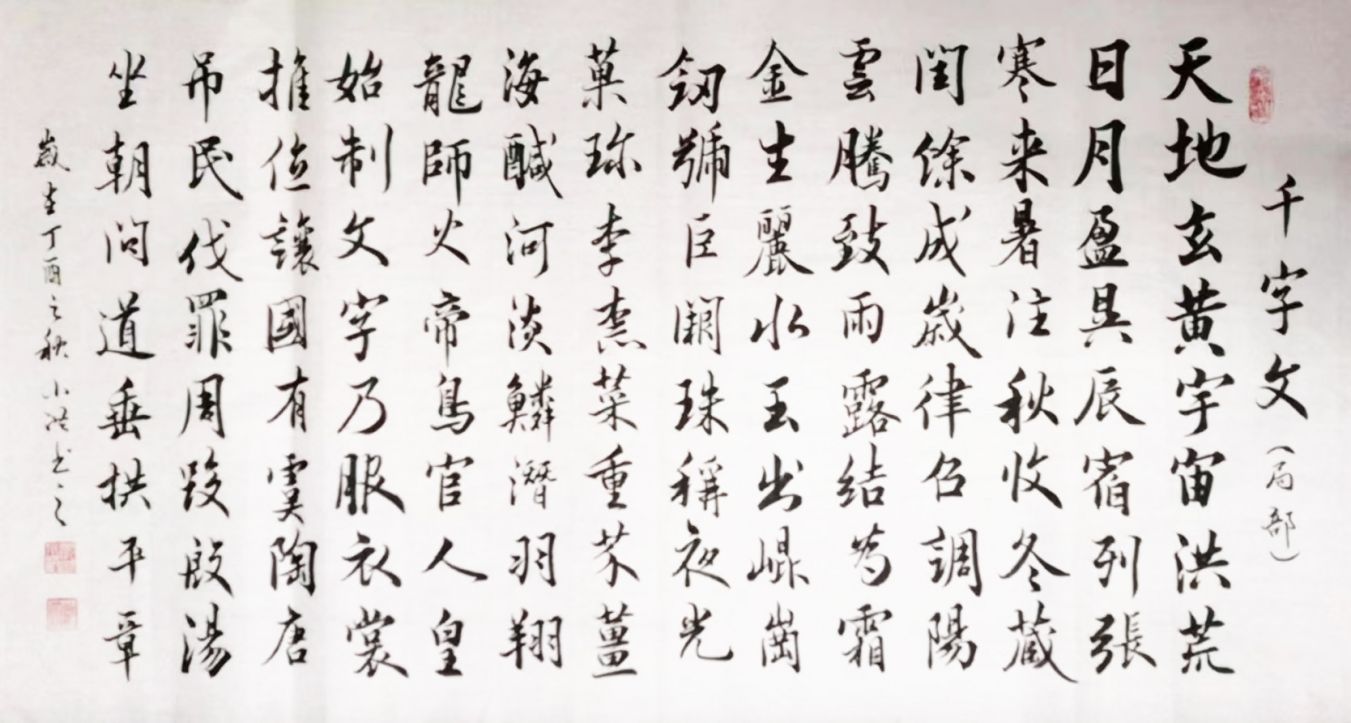 千字文（局部）
天地玄黄宇宙洪荒
日月盈昃辰宿列張
寒来暑注秋收冬蔵
闰餘成歳律召調陽
雲騰致雨露结為霜
金生麗水玉出崐崗
剑號巨阙珠稱夜光
菓珎李柰菜重芥薑
海醎河淡鱗潛羽翔
龍師火帝鳥官人皇
始制文字乃服衣裳
推位讓國有虞陶唐
吊民伐罪周發殷湯
坐朝问道垂拱平章
歲在丁酉之秋小洪书之